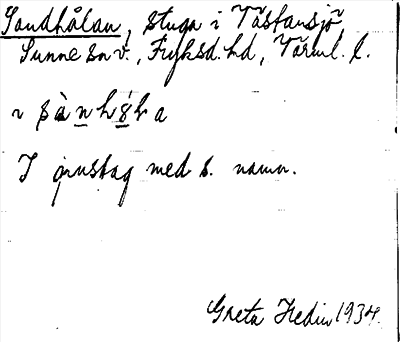 Sandhålan, stuga i Tåstansjö
Sunne sn v., Fryksd. hd, Värml. l.
I grustag med s. namn.
Greta Hedin 1934.